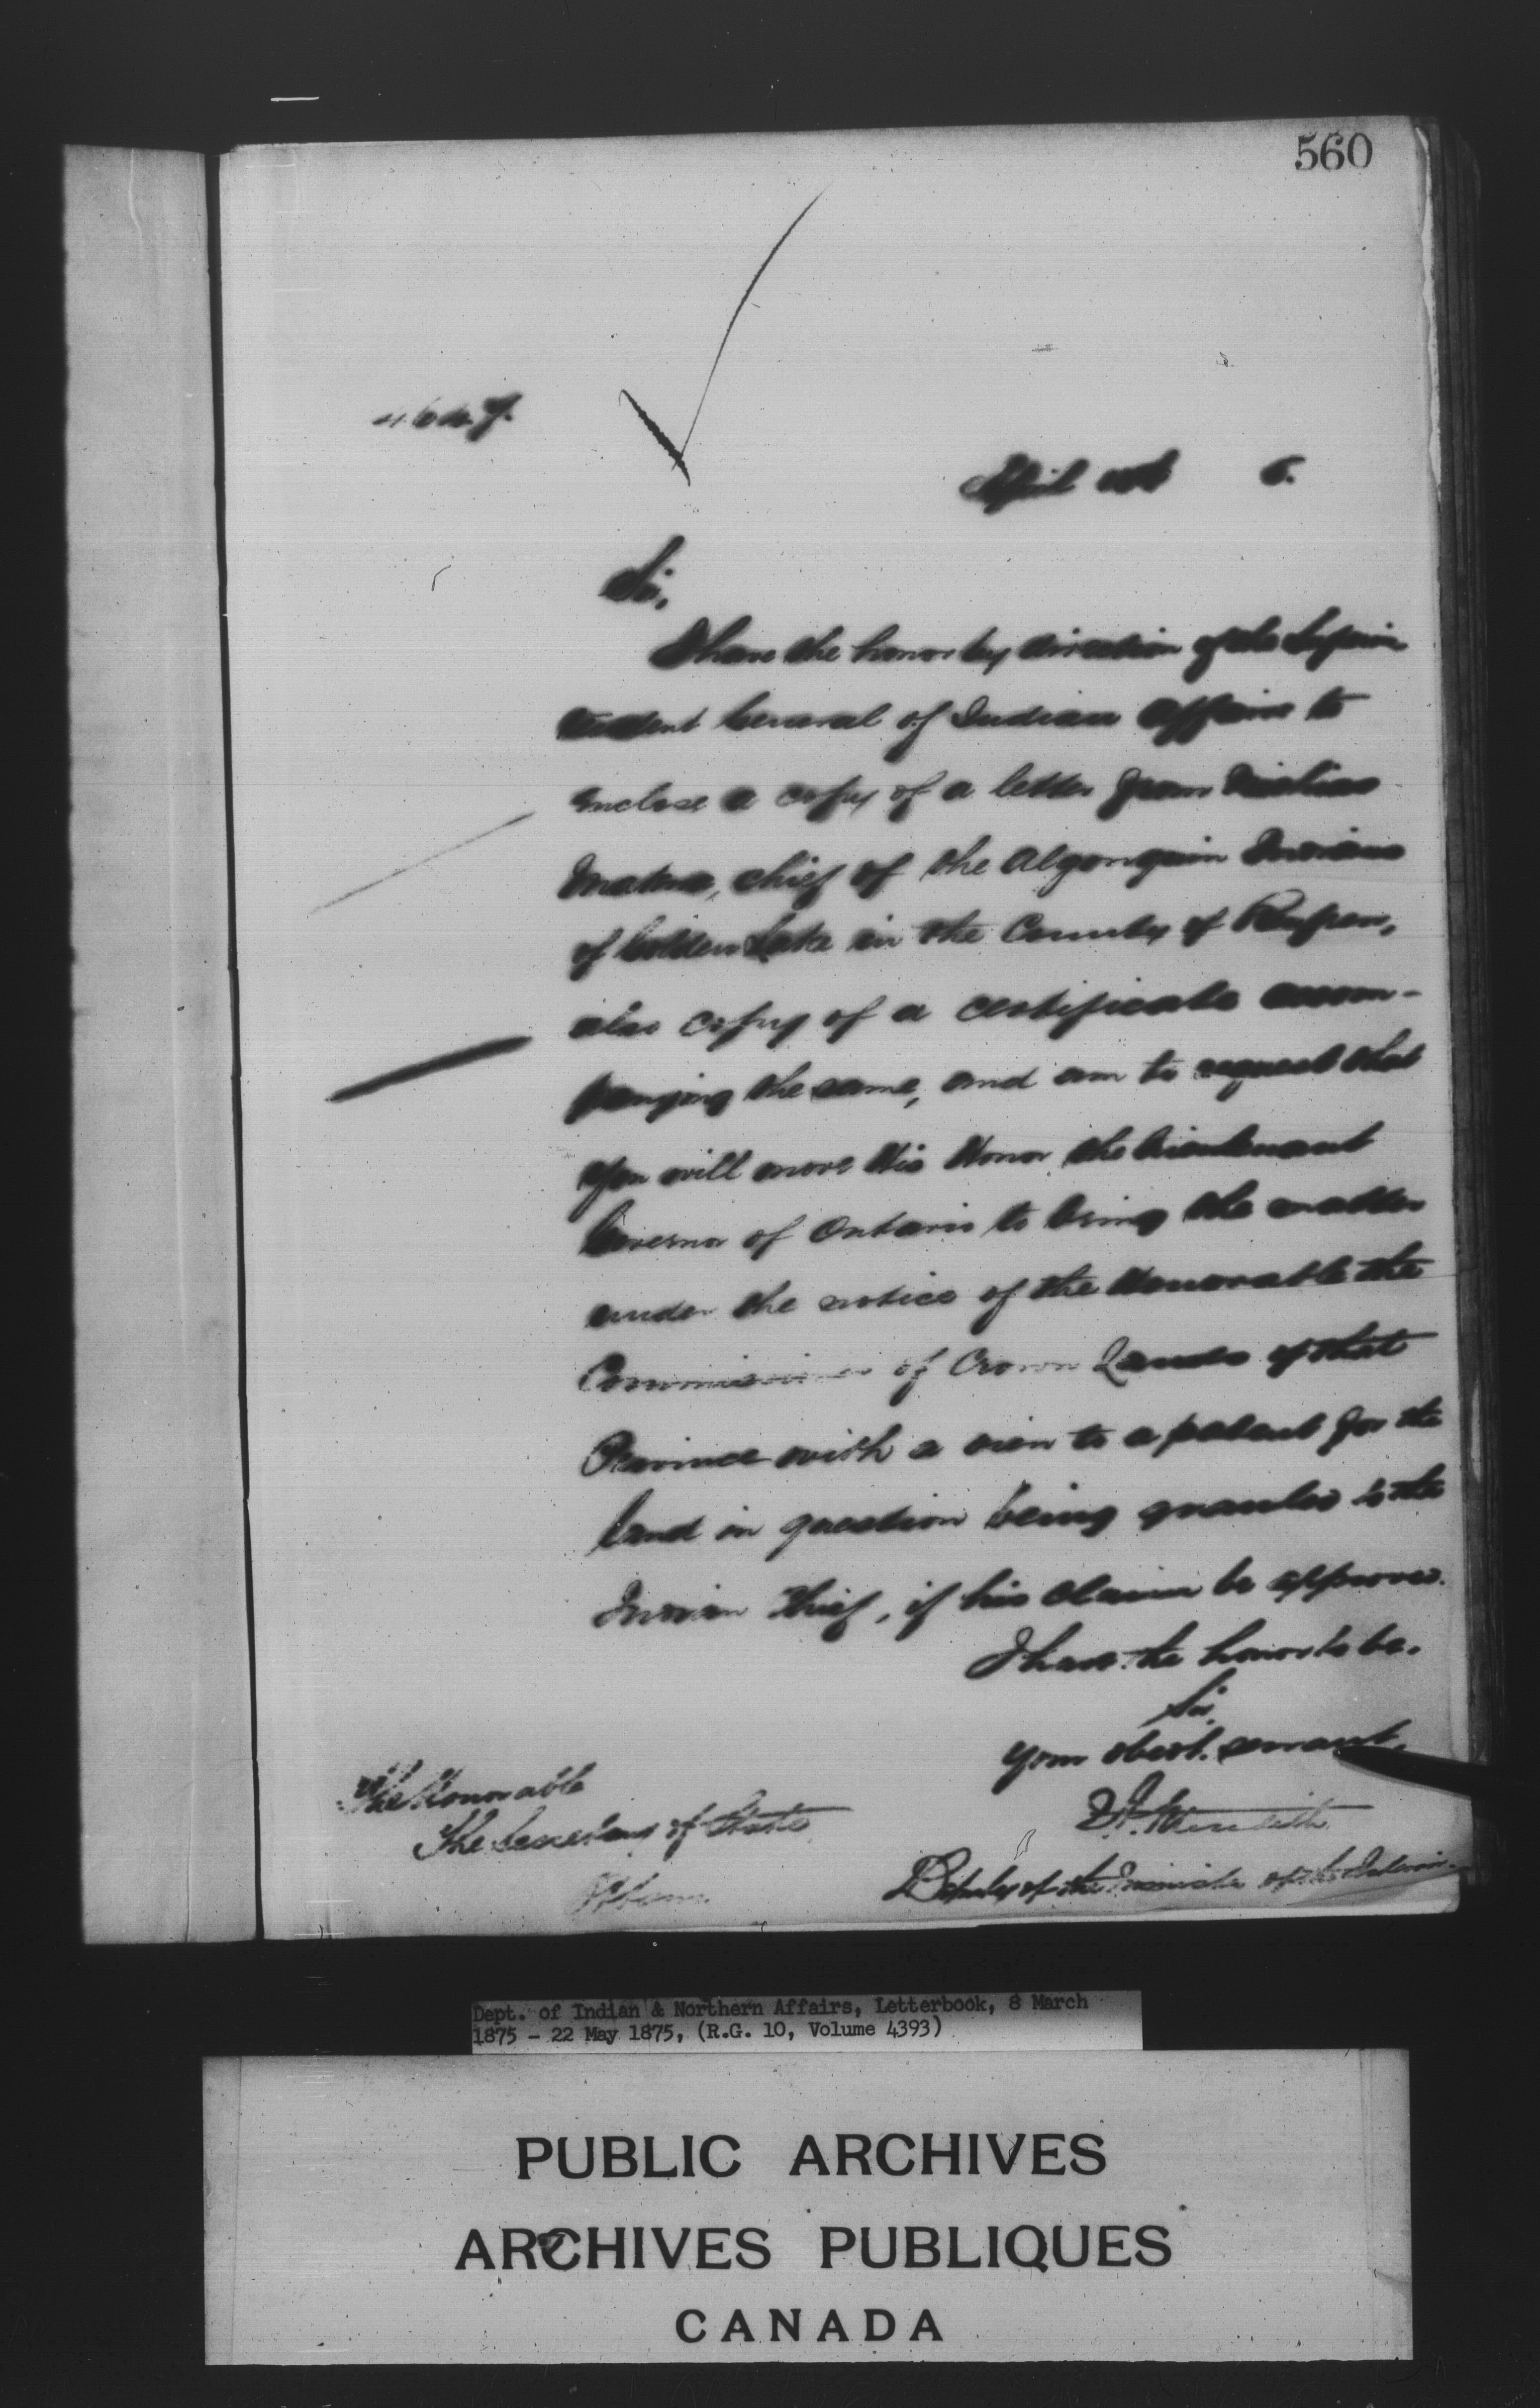 560
April
Sir,
I have the honor by direction of the Superin
tendent General of Indian Affairs to
enclose a copy of a letter from
chief of the Algonquin Indians
of Golden Lake in the County of Renfrew,
also copy of a certificate accom-
panying the same, and am to request that
you will move His Honor the Lieutenant
Governor of Ontario to bring the matter
under the notice of the Honorable the
Commissioner of Crown Lands of that
Province with a view to a patent for the
land in question being granted to the
Indian Chief, if his claim be approved.
I have the honor to be.
Sir,
Your obedt. servant,
Meredith
Deputy of the Minister of the Interior.
The Honorable
The Secretary of State
Dept. of Indian & Northern Affairs, Letterbook, 8 March
1875 - 22 May 1875, (R.G. 10, Volume 4393)
PUBLIC ARCHIVES
ARCHIVES PUBLIQUES
CANADA